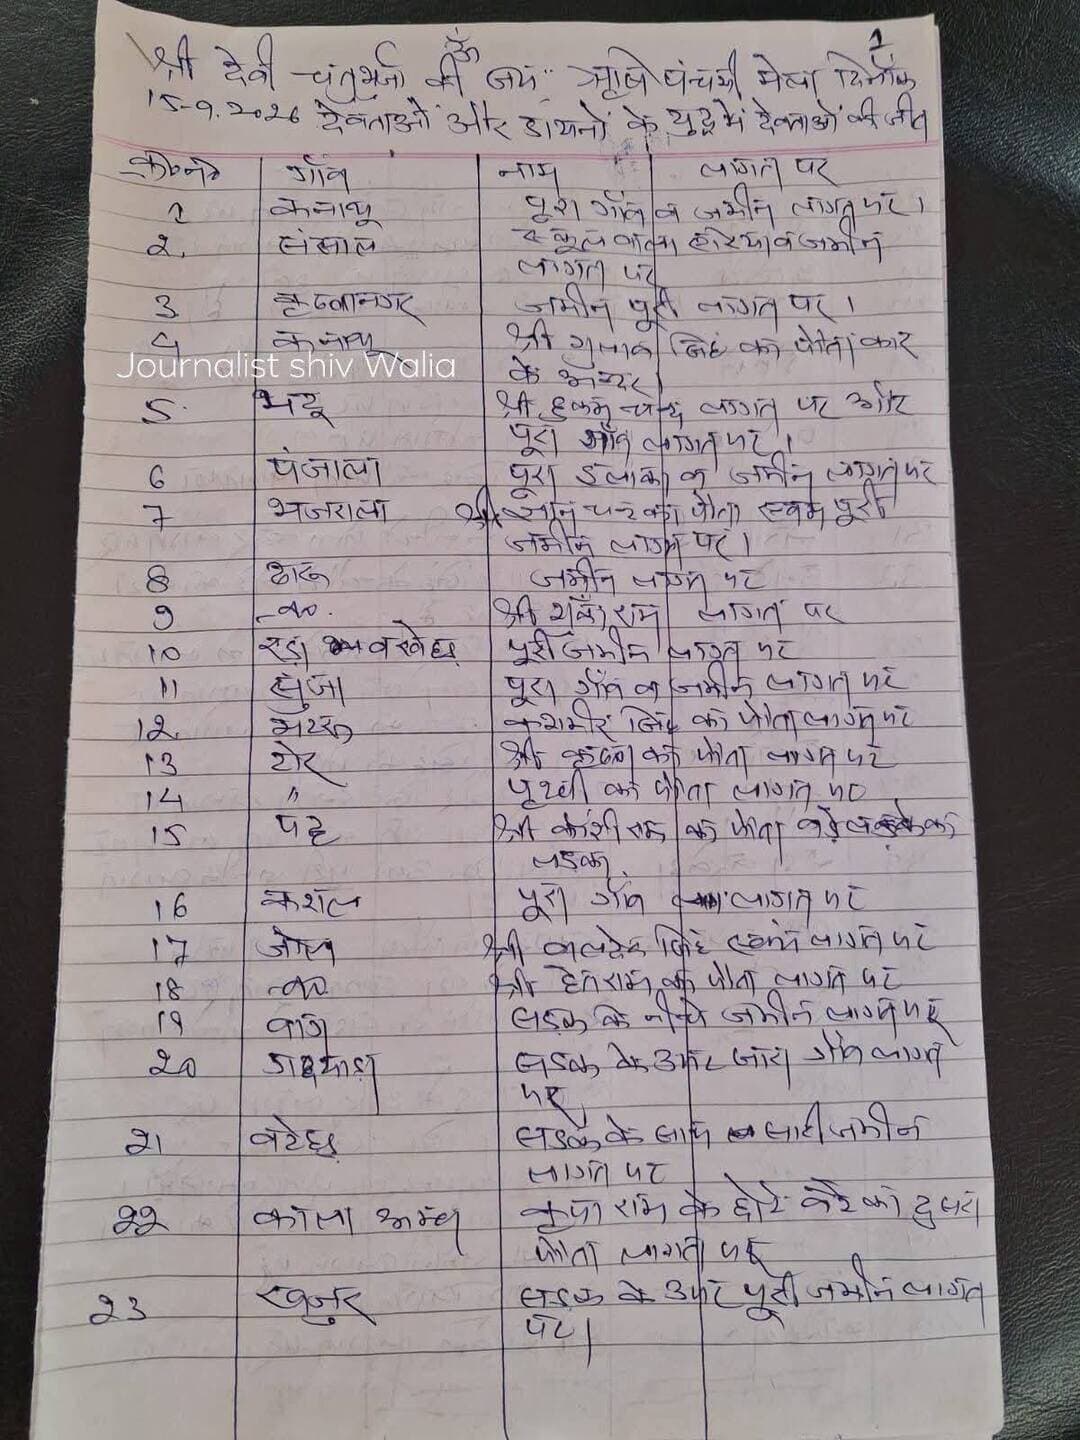 1
ॐ
श्री देवी चतुर्भुजा की जय ऋषि पंचमी मेला दिनाँक
15-9-2026 देवताओं और डायनों के युद्ध में देवताओं की जीत
गाँव नाम लागत पर
1 कनाथू पूरा गाँव व जमीन लागत पर।
2. संसाल स्कूल वाला व जमीन
लागत पर
3 कृष्णानगर जमीन पूरी लागत पर।
4 कनाथू श्री गुलाब सिंह का पोता कार
के अन्दर।
Journalist shiv Walia
5. भटू श्री हुकम चन्द लागत पर और
पूरा गाँव लागत पर।
6 पंजाला पूरा इलाका व जमीन लागत पर
7 भजराला श्री ज्ञान चन्द का पोता पूरी
जमीन लागत पर।
8 जमीन लागत पर
9 श्री राम लागत पर
10 पूरी जमीन लागत पर
11 सुंजा पूरा गाँव व जमीन लागत पर
12 कशमीर सिंह का पोता लागत पर
13 शेर श्री कृष्ण का पोता लागत पर
14 " पृथ्वी का पोता लागत पर
15 श्री कांशी राम का पोता बड़े लड़के का
लड़का
16 कशल पूरा गाँव लागत पर
17 जोल श्री बलदेव सिंह लागत पर
18 श्री हेतराम का पोता लागत पर
19 बाग सड़क के नीचे जमीन लागत पर
20 सड़क के उपर सारा गाँव लागत
पर
21 सड़क के साथ सारी जमीन
लागत पर
22 काला अम्ब कृपा राम के छोटे बेटे का दुसरा
पोता लागत पर
23 खजुर सड़क के उपर पूरी जमीन लागत
पर।